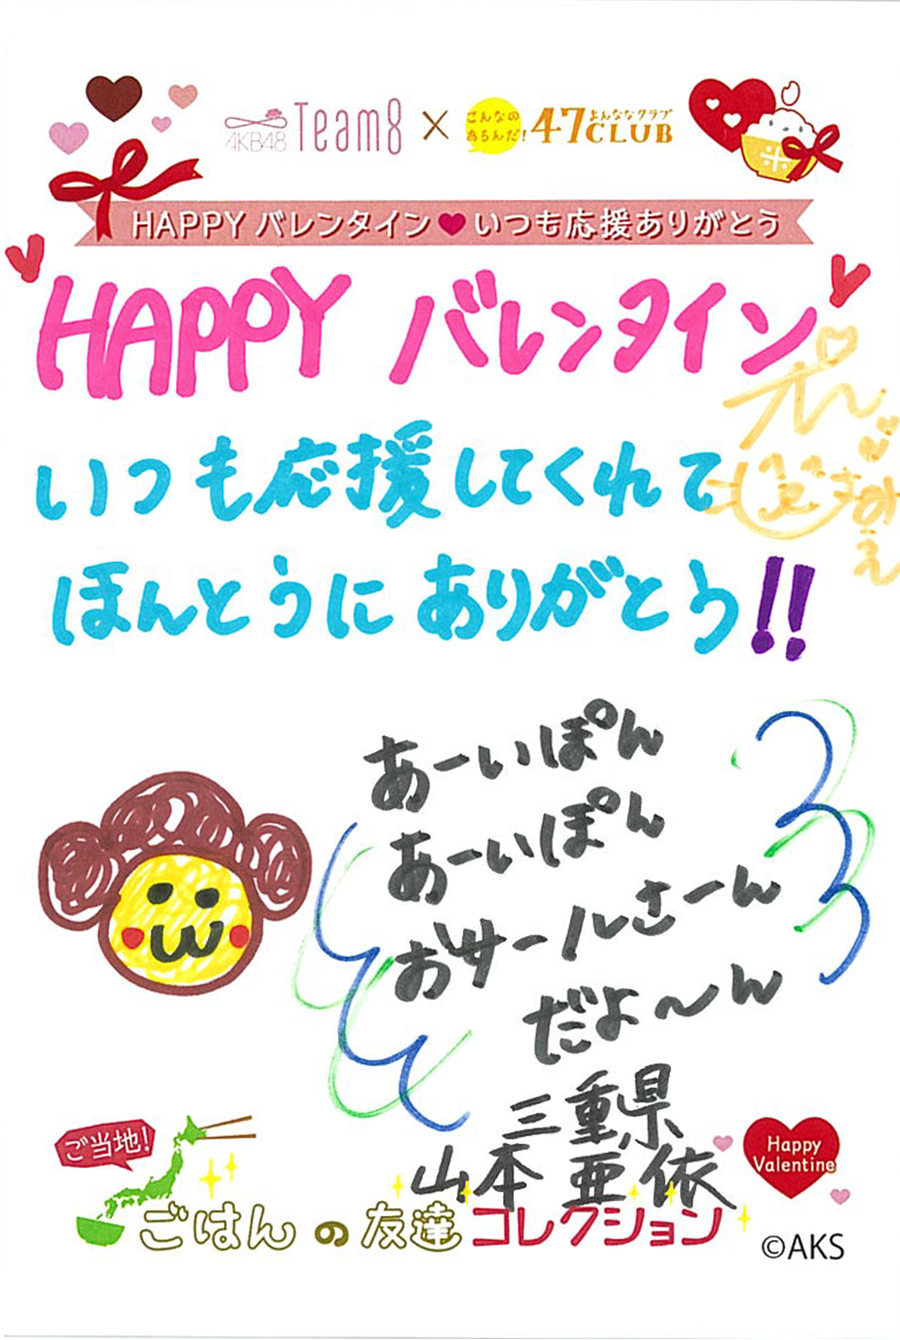 AKB48 Team8 × こんなのあるんだ! 47CLUB よんななクラブ
HAPPY バレンタイン♥いつも応援ありがとう
HAPPY バレンタイン
いつも応援してくれて
ほんとうに ありがとう!!
みえ
あーいぽん
あーいぽん
おサールさーん
だよ〜ん
三重県
山本 亜依
ご当地!
ごはんの友達コレクション
Happy
Valentine
©AKS